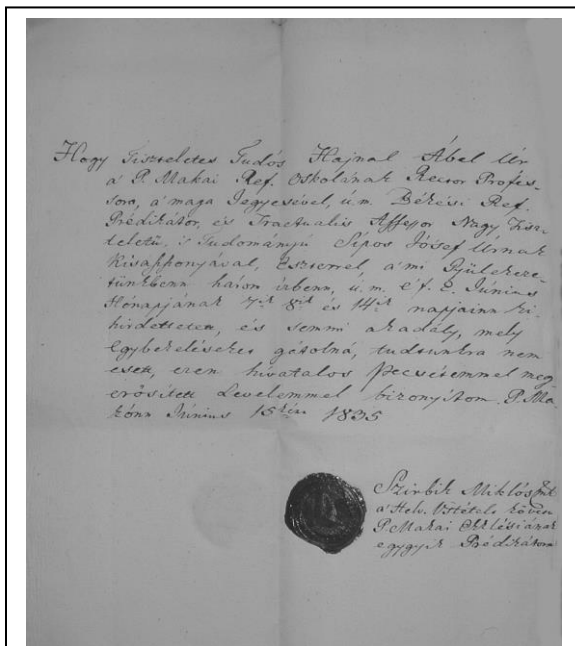 Hogy Tiszteletes Tudós Hajnal Ábel Úr
a' P. Makai Ref. Oskolának Rector Profes-
sora, a' maga Jegyesével, ú.m. Békési Ref.
Prédikátor, és Tractualis Assessor Nagy Tisz-
teletü 's Tudományú Sipos Jósef Urnak
Kisasszonyával, Eszterrel, a' mi Gyülekeze-
tünkbenn három izbenn, ú.m. e' f. é. Június
Hónapjának 7ik 8ik és 14ik napjainn ki
hirdettetett, és semmi akadály, mely
egybekeléseket gátolná, tudtunkra nem
esett, ezen hivatalos pecsétemmel meg
erősitett Levelemmel bizonyítom. P. Ma-
kónn Június 15én 1835
Szirbik Miklós
a' Helv. Vallástételt követő
P. Makai Ekklésiának
egygyik Prédikátora